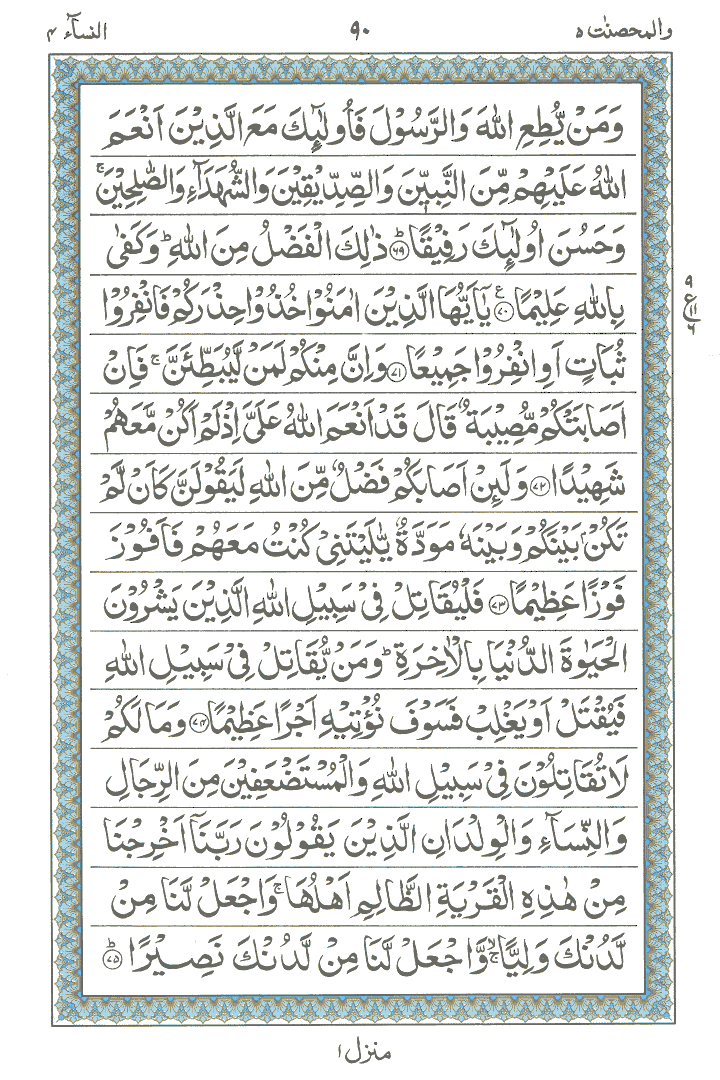 والمحصنٰت ۵ ۹۰ النسآء ۴
وَمَنْ يُّطِعِ اللّٰهَ وَالرَّسُوْلَ فَاُولٰٓئِكَ مَعَ الَّذِيْنَ اَنْعَمَ
اللّٰهُ عَلَيْهِمْ مِّنَ النَّبِيّٖنَ وَالصِّدِّيْقِيْنَ وَالشُّهَدَآءِ وَالصّٰلِحِيْنَ ۚ
وَحَسُنَ اُولٰٓئِكَ رَفِيْقًا ؕ ۶۹ ذٰلِكَ الْفَضْلُ مِنَ اللّٰهِ ؕ وَكَفٰى
بِاللّٰهِ عَلِيْمًا ۷۰ ع يٰٓاَيُّهَا الَّذِيْنَ اٰمَنُوْا خُذُوْا حِذْرَكُمْ فَانْفِرُوْا
۹ ع ۱۱ ۶
ثُبَاتٍ اَوِ انْفِرُوْا جَمِيْعًا ۷۱ وَاِنَّ مِنْكُمْ لَمَنْ لَّيُبَطِّئَنَّ ۚ فَاِنْ
اَصَابَتْكُمْ مُّصِيْبَةٌ قَالَ قَدْ اَنْعَمَ اللّٰهُ عَلَيَّ اِذْ لَمْ اَكُنْ مَّعَهُمْ
شَهِيْدًا ۷۲ وَلَئِنْ اَصَابَكُمْ فَضْلٌ مِّنَ اللّٰهِ لَيَقُوْلَنَّ كَاَنْ لَّمْ
تَكُنْۢ بَيْنَكُمْ وَبَيْنَهٗ مَوَدَّةٌ يّٰلَيْتَنِيْ كُنْتُ مَعَهُمْ فَاَفُوْزَ
فَوْزًا عَظِيْمًا ۷۳ فَلْيُقَاتِلْ فِيْ سَبِيْلِ اللّٰهِ الَّذِيْنَ يَشْرُوْنَ
الْحَيٰوةَ الدُّنْيَا بِالْاٰخِرَةِ ؕ وَمَنْ يُّقَاتِلْ فِيْ سَبِيْلِ اللّٰهِ
فَيُقْتَلْ اَوْ يَغْلِبْ فَسَوْفَ نُؤْتِيْهِ اَجْرًا عَظِيْمًا ۷۴ وَمَا لَكُمْ
لَا تُقَاتِلُوْنَ فِيْ سَبِيْلِ اللّٰهِ وَالْمُسْتَضْعَفِيْنَ مِنَ الرِّجَالِ
وَالنِّسَآءِ وَالْوِلْدَانِ الَّذِيْنَ يَقُوْلُوْنَ رَبَّنَآ اَخْرِجْنَا
مِنْ هٰذِهِ الْقَرْيَةِ الظَّالِمِ اَهْلُهَا ۚ وَاجْعَلْ لَّنَا مِنْ
لَّدُنْكَ وَلِيًّا ۙۚ وَّاجْعَلْ لَّنَا مِنْ لَّدُنْكَ نَصِيْرًا ؕ ۷۵
منزل ۱